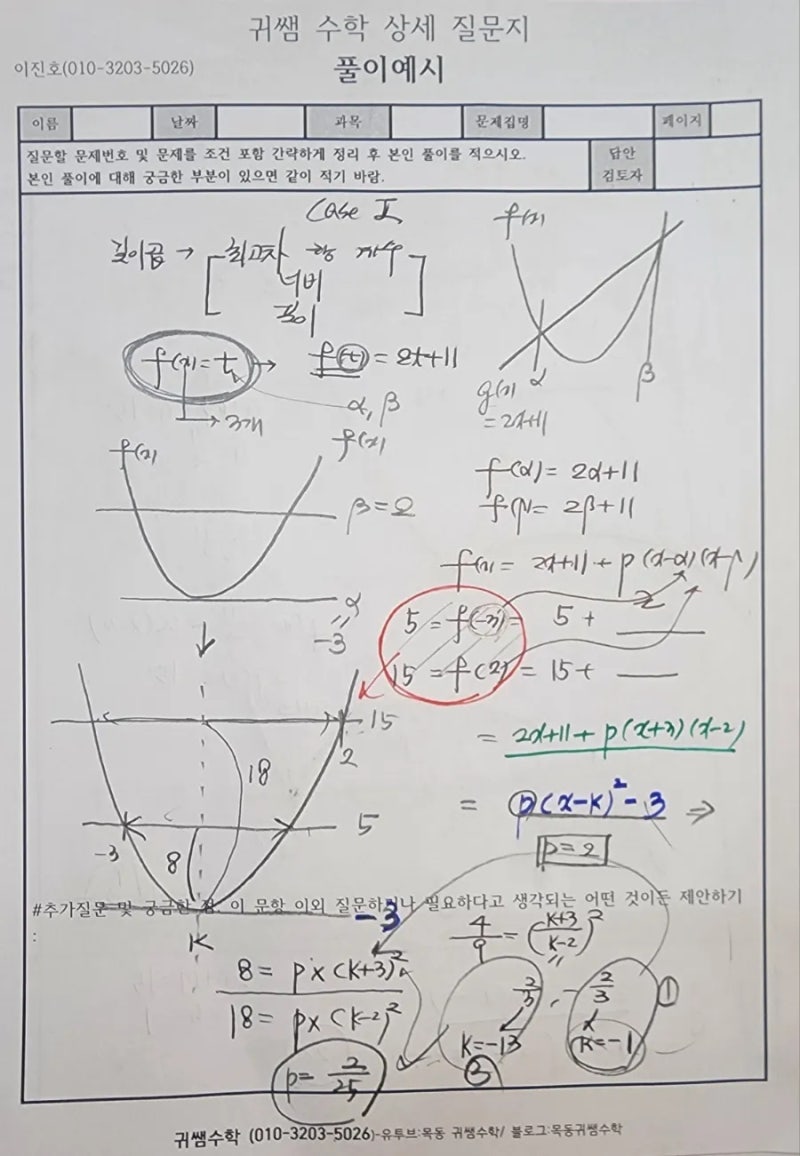 귀쌤 수학 상세 질문지
이진호(010-3203-5026)
풀이예시
이름 날짜 과목 문제집명 페이지
질문할 문제번호 및 문제를 조건 포함 간략하게 정리 후 본인 풀이를 적으시오.
본인 풀이에 대해 궁금한 부분이 있으면 같이 적기 바람.
답안
검토자
Case I
길이곱 → [최고차 항 계수
너비
높이]
f(x)
g(x)
= 2x+11
α
β
f(x) = t → f(t) = 2t+11
α, β
→ 3개
f(x)
f(x)
β = 2
α
=
-3
f(α) = 2α+11
f(β) = 2β+11
f(x) = 2x+11 + p(x-α)(x-β)
5 = f(-3) = 5 +
15 = f(2) = 15 +
= 2x+11 + p(x+3)(x-2)
= p(x-k)² - 3 ⇒
p = 2
15
2
18
5
-3
8
-3
K
#추가질문 및 궁금한 점, 이 문항 이외 질문하거나 필요하다고 생각되는 어떤 것이든 제안하기
:
8 = p × (k+3)²
18 = p × (k-2)²
4/9 = (k+3/k-2)²
2/3, -2/3
①
k = -13
k = -1
③
p = 2/25
귀쌤수학 (010-3203-5026)-유투브:목동 귀쌤수학/ 블로그:목동귀쌤수학